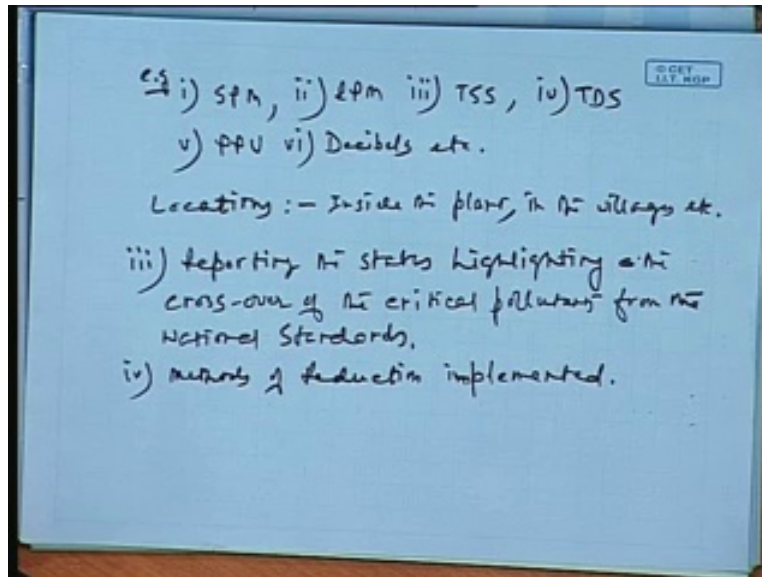 e.g i) SPM, ii) RPM iii) TSS, iv) TDS
© CET
I.I.T. KGP
v) PPV vi) Decibels etc.
Locations :- Inside the plant, in the villages etc.
iii) Reporting the status highlighting the
cross-over of the critical pollutants from the
National Standards.
iv) methods of reduction implemented.